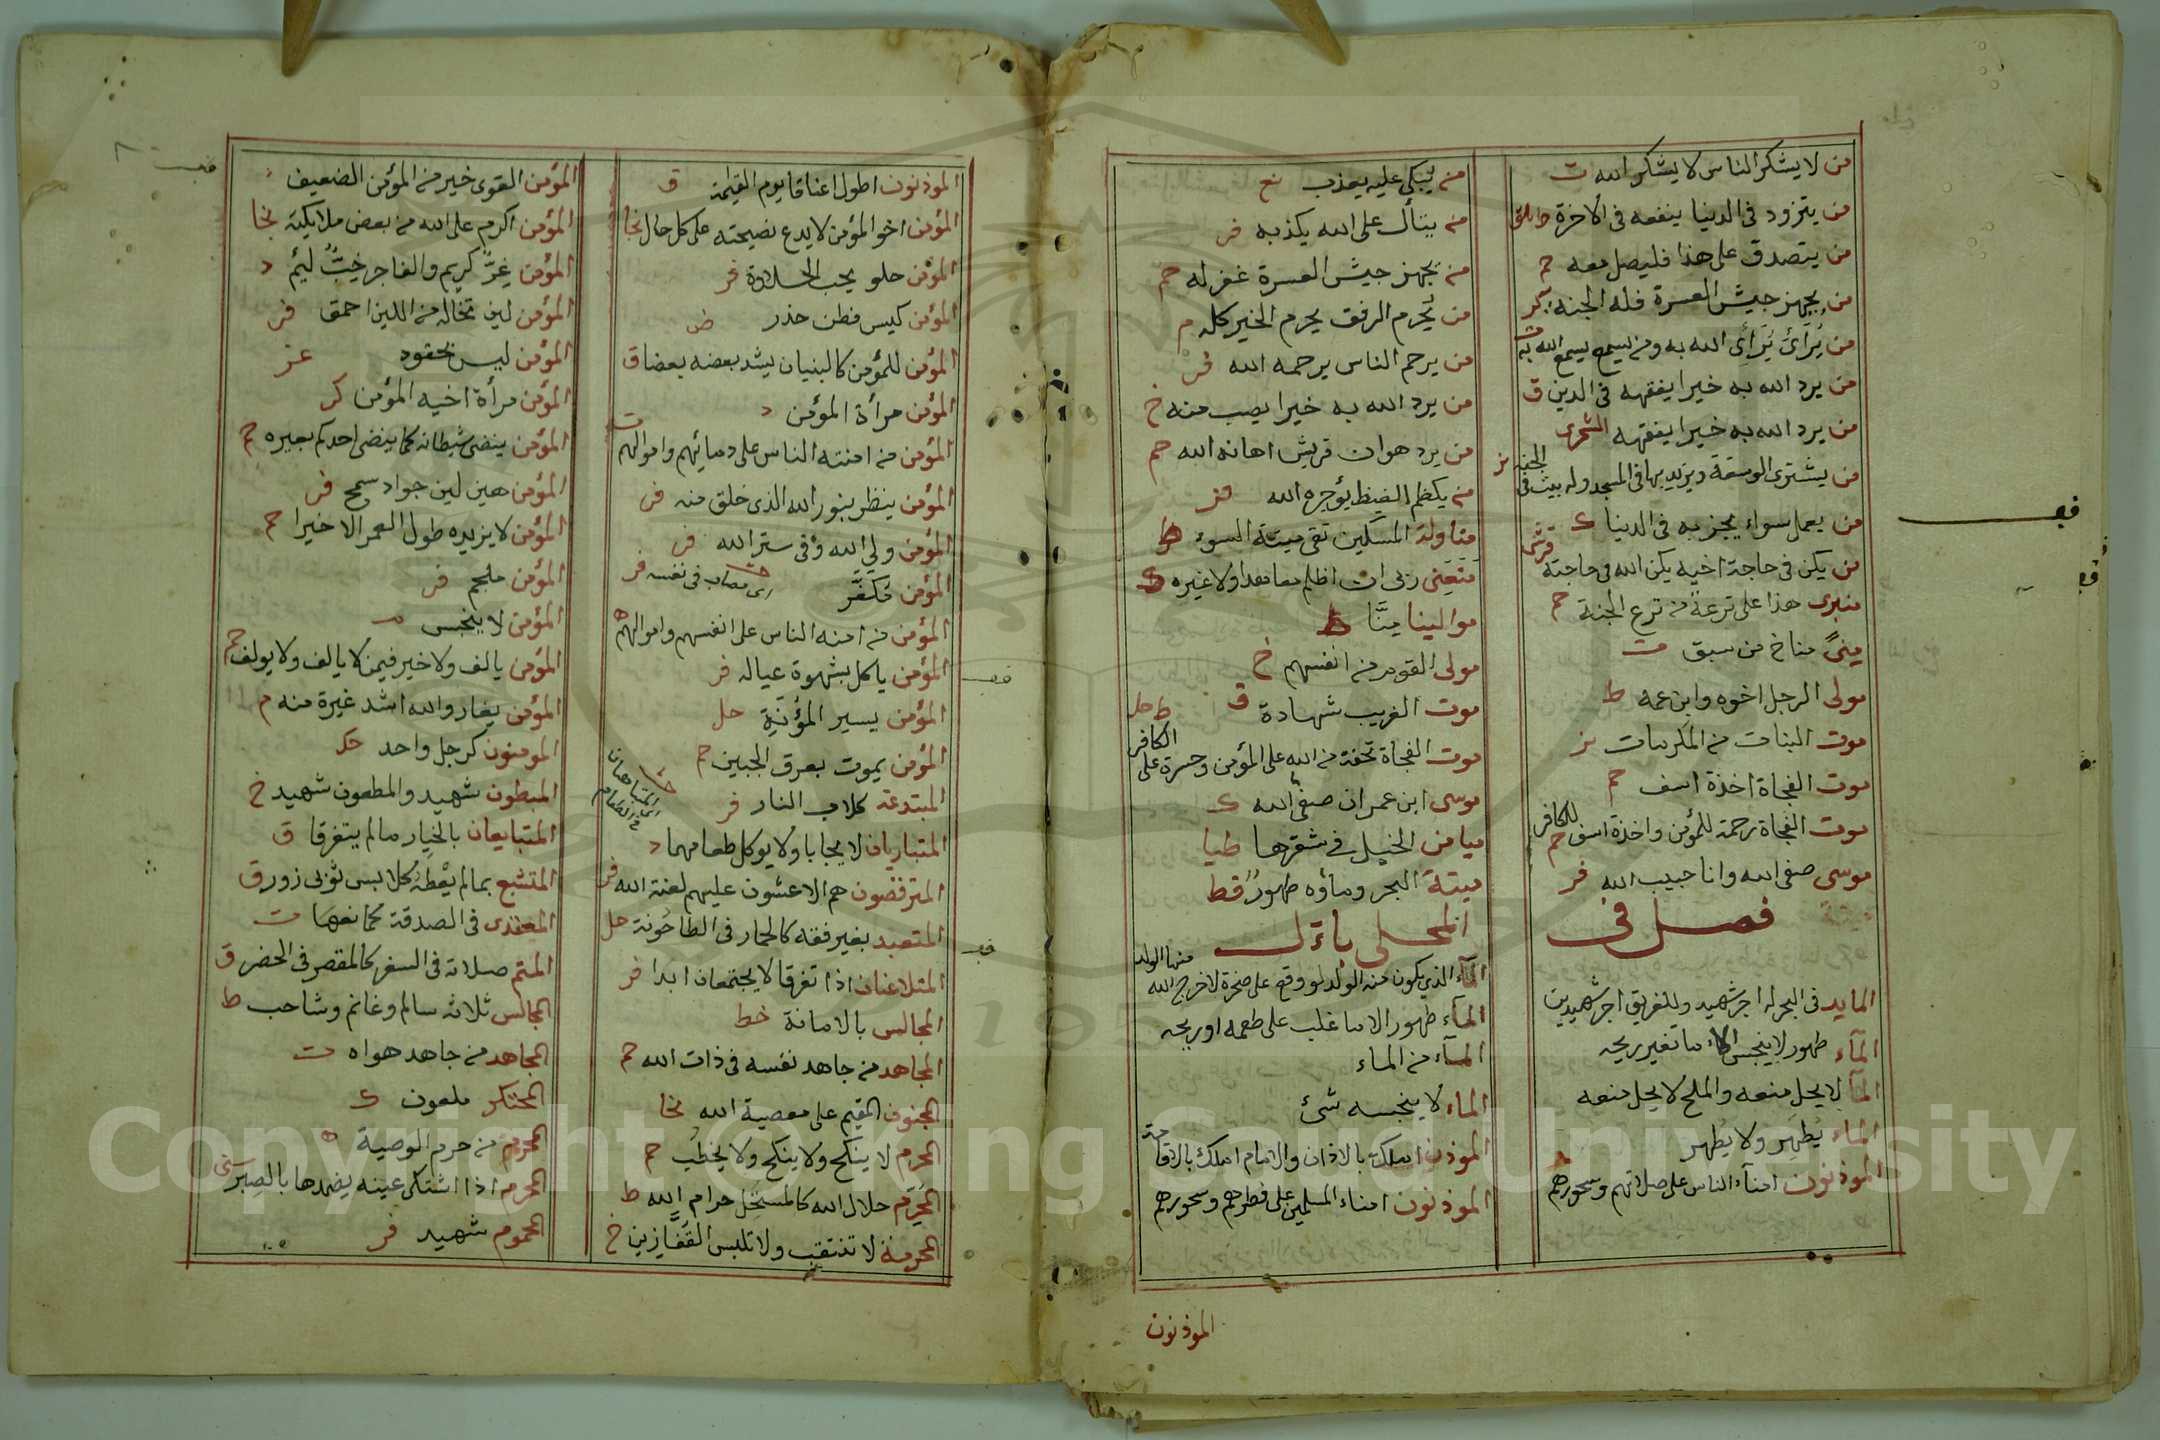 من لا يشكر الناس لا يشكر الله ت
من يتزود في الدنيا ينفعه في الآخرة
من يتصدق على هذا فليصل معه حم
من يجهز جيش العسرة فله الجنة
من يُرَائي يُرَائي الله به ومن يسمع يسمع الله به
من يرد الله به خيرا يفقهه في الدين ق
من يرد الله به خيرا يفقهه
من يشتري الوسقة ويزيد بها في المسجد وله بيت في الجنة
من يعمل سواء يجز به في الدنيا ك
من يكن في حاجة اخيه يكن الله في حاجته
منبري هذا على ترعة من ترع الجنة حم
مِنىً مناخ من سبق ت
مولى الرجل اخوه وابن عمه ط
موت البنات من المكرمات بز
موت الفجاة اخذة اسف حم
موت الفجاة رحمة للمؤمن واخذة اسف للكافر حم
موسى صفي الله وانا حبيب الله فر
فصل في
المايد في البحر له اجر شهيد وللغريق اجر شهيدين
المآء طهور لا ينجس الا ما تغير ريحه
المآ لا يحل منعه والملح لا يحل منعه
الماء يُطهِر ولا يُطهر
الموذنون امنآء الناس على صلاتهم وسحورهم
من يبكى عليه يعذب نع
من يتأل على الله يكذبه فر
من يجهز جيش العسرة غفر له حم
من يُحرم الرفق يحرم الخير كله م
من يرحم الناس يرحمه الله فر
من يرد الله به خيرا يصب منه خ
من يرد هوان قريش اهانه الله حم
من يكظم الغيظ يؤجره الله
مناولة المسكين تقي ميتة السوء ط
مَنَعَنِي ربي ان اظلم معاهدا ولا غيره ك
موالينا مِنَّا ط
مولى القوم من انفسهم خ
موت الغريب شهادة ق
موت الفجاة تحفة من الله على المؤمن وحسرة على الكافر
موسى ابن عمران صفي الله ك
ميامن الخيل في شقرها طيا
ميتة البحر وماؤه طهورٌ قط
المحلى بال
المآء الذي يكون منه الولد لو وقع على صخرة لاخرج الله منها الولد
المآء طهور الا ما غلب على طعمه او ريحه
المآء من الماء
الماء لا ينجسه شئ
الموذن املك بالاذان والامام املك بالاقامة
الموذنون امناء المسلمين على فطرهم وسحورهم
الموذنون
الموذنون اطول اعناقا يوم القيامة ق
المؤمن اخو المؤمن لا يدع نصيحته على كل حال نجا
المؤمن حلو يحب الحلاوة فر
المؤمن كيس فطن حذر ض
المؤمن للمؤمن كالبنيان يشد بعضه بعضا ق
المؤمن مرأة المؤمن د
المؤمن من امنته الناس على دمائهم واموالهم ت
المؤمن ينظر بنور الله الذي خلق منه فر
المؤمن ولي الله وفي ستر الله فر
المؤمن مُكَفَّر اى مصاب في نفسه فر
المؤمن من امنه الناس على انفسهم واموالهم ه
المؤمن ياكل بشهوة عياله فر
المؤمن يسير المؤنَةِ حل
المؤمن يموت بعرق الجبين حم
المبتدعة كلاب النار فر
المتباريان لا يجابا ولا يوكل طعامهما د
المترفضون هم الاعشون عليهم لعنة الله فر
المتعبد بغير فقه كالحمار في الطاحُونة حل
المتلاعنان اذا تفرقا لا يجتمعان ابدا فر
المجالس بالامانة خط
المجاهد من جاهد نفسه في ذات الله حم
المجنون المقيم على معصية الله نجا
المحرم لا ينكح ولا ينكح ولا يخطب حم
المُحَرِّم حلال الله كالمستحل حرام الله ط
المحرمة لا تنتقب ولا تلبس القُفَّازين خ
المؤمن القوي خير من المؤمن الضعيف
المؤمن اكرم على الله من بعض ملايكته نجا
المؤمن غِرٌّ كريم والفاجر خِبٌّ ليئم د
المؤمن لين تخاله من اللين احمق فر
المؤمن ليس بحقود عز
المؤمن مرأة اخيه المؤمن كر
المؤمن ينضى شيطانه كما ينضى احدكم بعيره حم
المؤمن هين لين جواد سمح فر
المؤمن لا يزيده طول العمر الا خيرا حم
المؤمن ملجم فر
المؤمن لا ينجس م
المؤمن يالف ولا خير فيمن لا يالف ولا يولف حم
المؤمن يغار والله اشد غيرة منه م
المومنون كرجل واحد حكـ
المبطون شهيد والمطعون شهيد خ
المتبايعان بالخيار ما لم يتفرقا ق
المتشبع بما لم يعطه كلابس ثوبي زور ق
المعتدى في الصدقة كمانعها ت
المتم صلاته في السفر كالمقصر في الحضر ق
المجالس ثلاثه سالم وغانم وشاحب ط
المجاهد من جاهد هواه ت
المحتكر ملعون ك
المحروم من حرم الوصية ه
المحرم اذا اشتكى عينه يضمدها بالصبر
المحموم شهيد فر
Copyright © King Saud University
1957